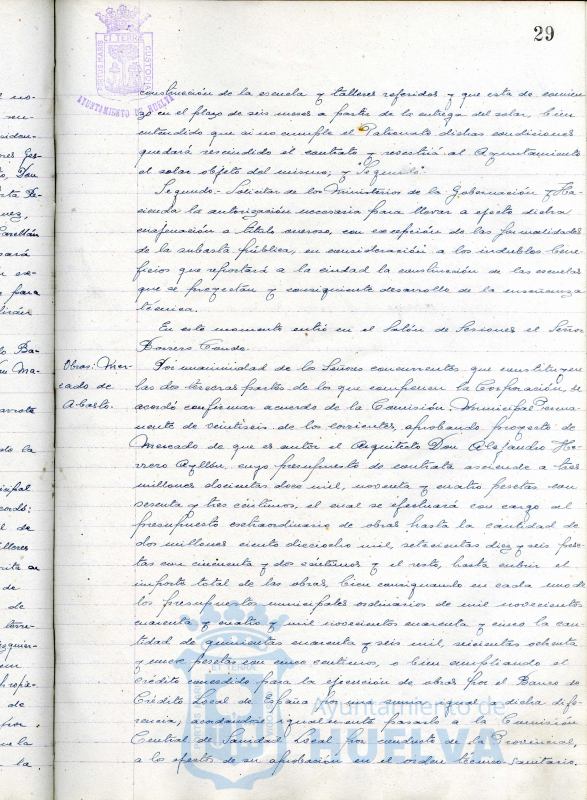 29
PORTUS MARIS ET TERRAE CUSTODIA
AYUNTAMIENTO DE HUELVA
construcción de la escuela y talleres referidos y que esta de comien-
zo en el plazo de seis meses a partir de la entrega del solar, bien
entendido que si no cumple el Patronato dichas condiciones
quedará rescindido el contrato y revertirá al Ayuntamiento
el solar objeto del mismo; y
Segundo.- Solicitar de los Ministerios de la Gobernación y Ha-
cienda la autorización necesaria para llevar a efecto dicha
enajenación a título oneroso, con excepción de las formalidades
de la subasta pública, en consideración a los indudables bene-
ficios que reportará a la ciudad la construcción de las escuelas
que se proyectan y consiguiente desarrollo de la enseñanza
técnica.
En este momento entró en el Salón de Sesiones el Señor
Borrero Conde.
Obras: Mer-
cado de
Abasto.
Por unanimidad de los Señores concurrentes que constituyen
las dos terceras partes de los que componen la Corporación, se
acordó confirmar acuerdo de la Comisión Municipal Perma-
nente de veintiseis de los corrientes, aprobando proyecto de
Mercado de que es autor el Arquitecto Don Alejandro He-
rrero Ayllón, cuyo presupuesto de contrata asciende a tres
millones doscientas doce mil, noventa y cuatro pesetas con
sesenta y tres céntimos, el cual se efectuará con cargo al
presupuesto extraordinario de obras hasta la cantidad de
dos millones ciento dieciocho mil, setecientas diez y seis pese-
tas con cincuenta y dos céntimos y el resto, hasta cubrir el
importe total de las obras, bien consignando en cada uno de
los presupuestos municipales ordinarios de mil novecientos
cuarenta y cuatro y mil novecientos cuarenta y cinco la can-
tidad de quinientas cuarenta y seis mil, seiscientas ochenta
y nueve pesetas con cinco céntimos, o bien ampliando el
crédito concedido para la ejecución de obras por el Banco de
Crédito Local de España por una suma igual a dicha dife-
rencia; acordándose igualmente pasarlo a la Comisión
Central de Sanidad Local por conducto de la Provincial,
a los efectos de su aprobación en el orden técnico-sanitario.
Ayuntamiento de
HUELVA